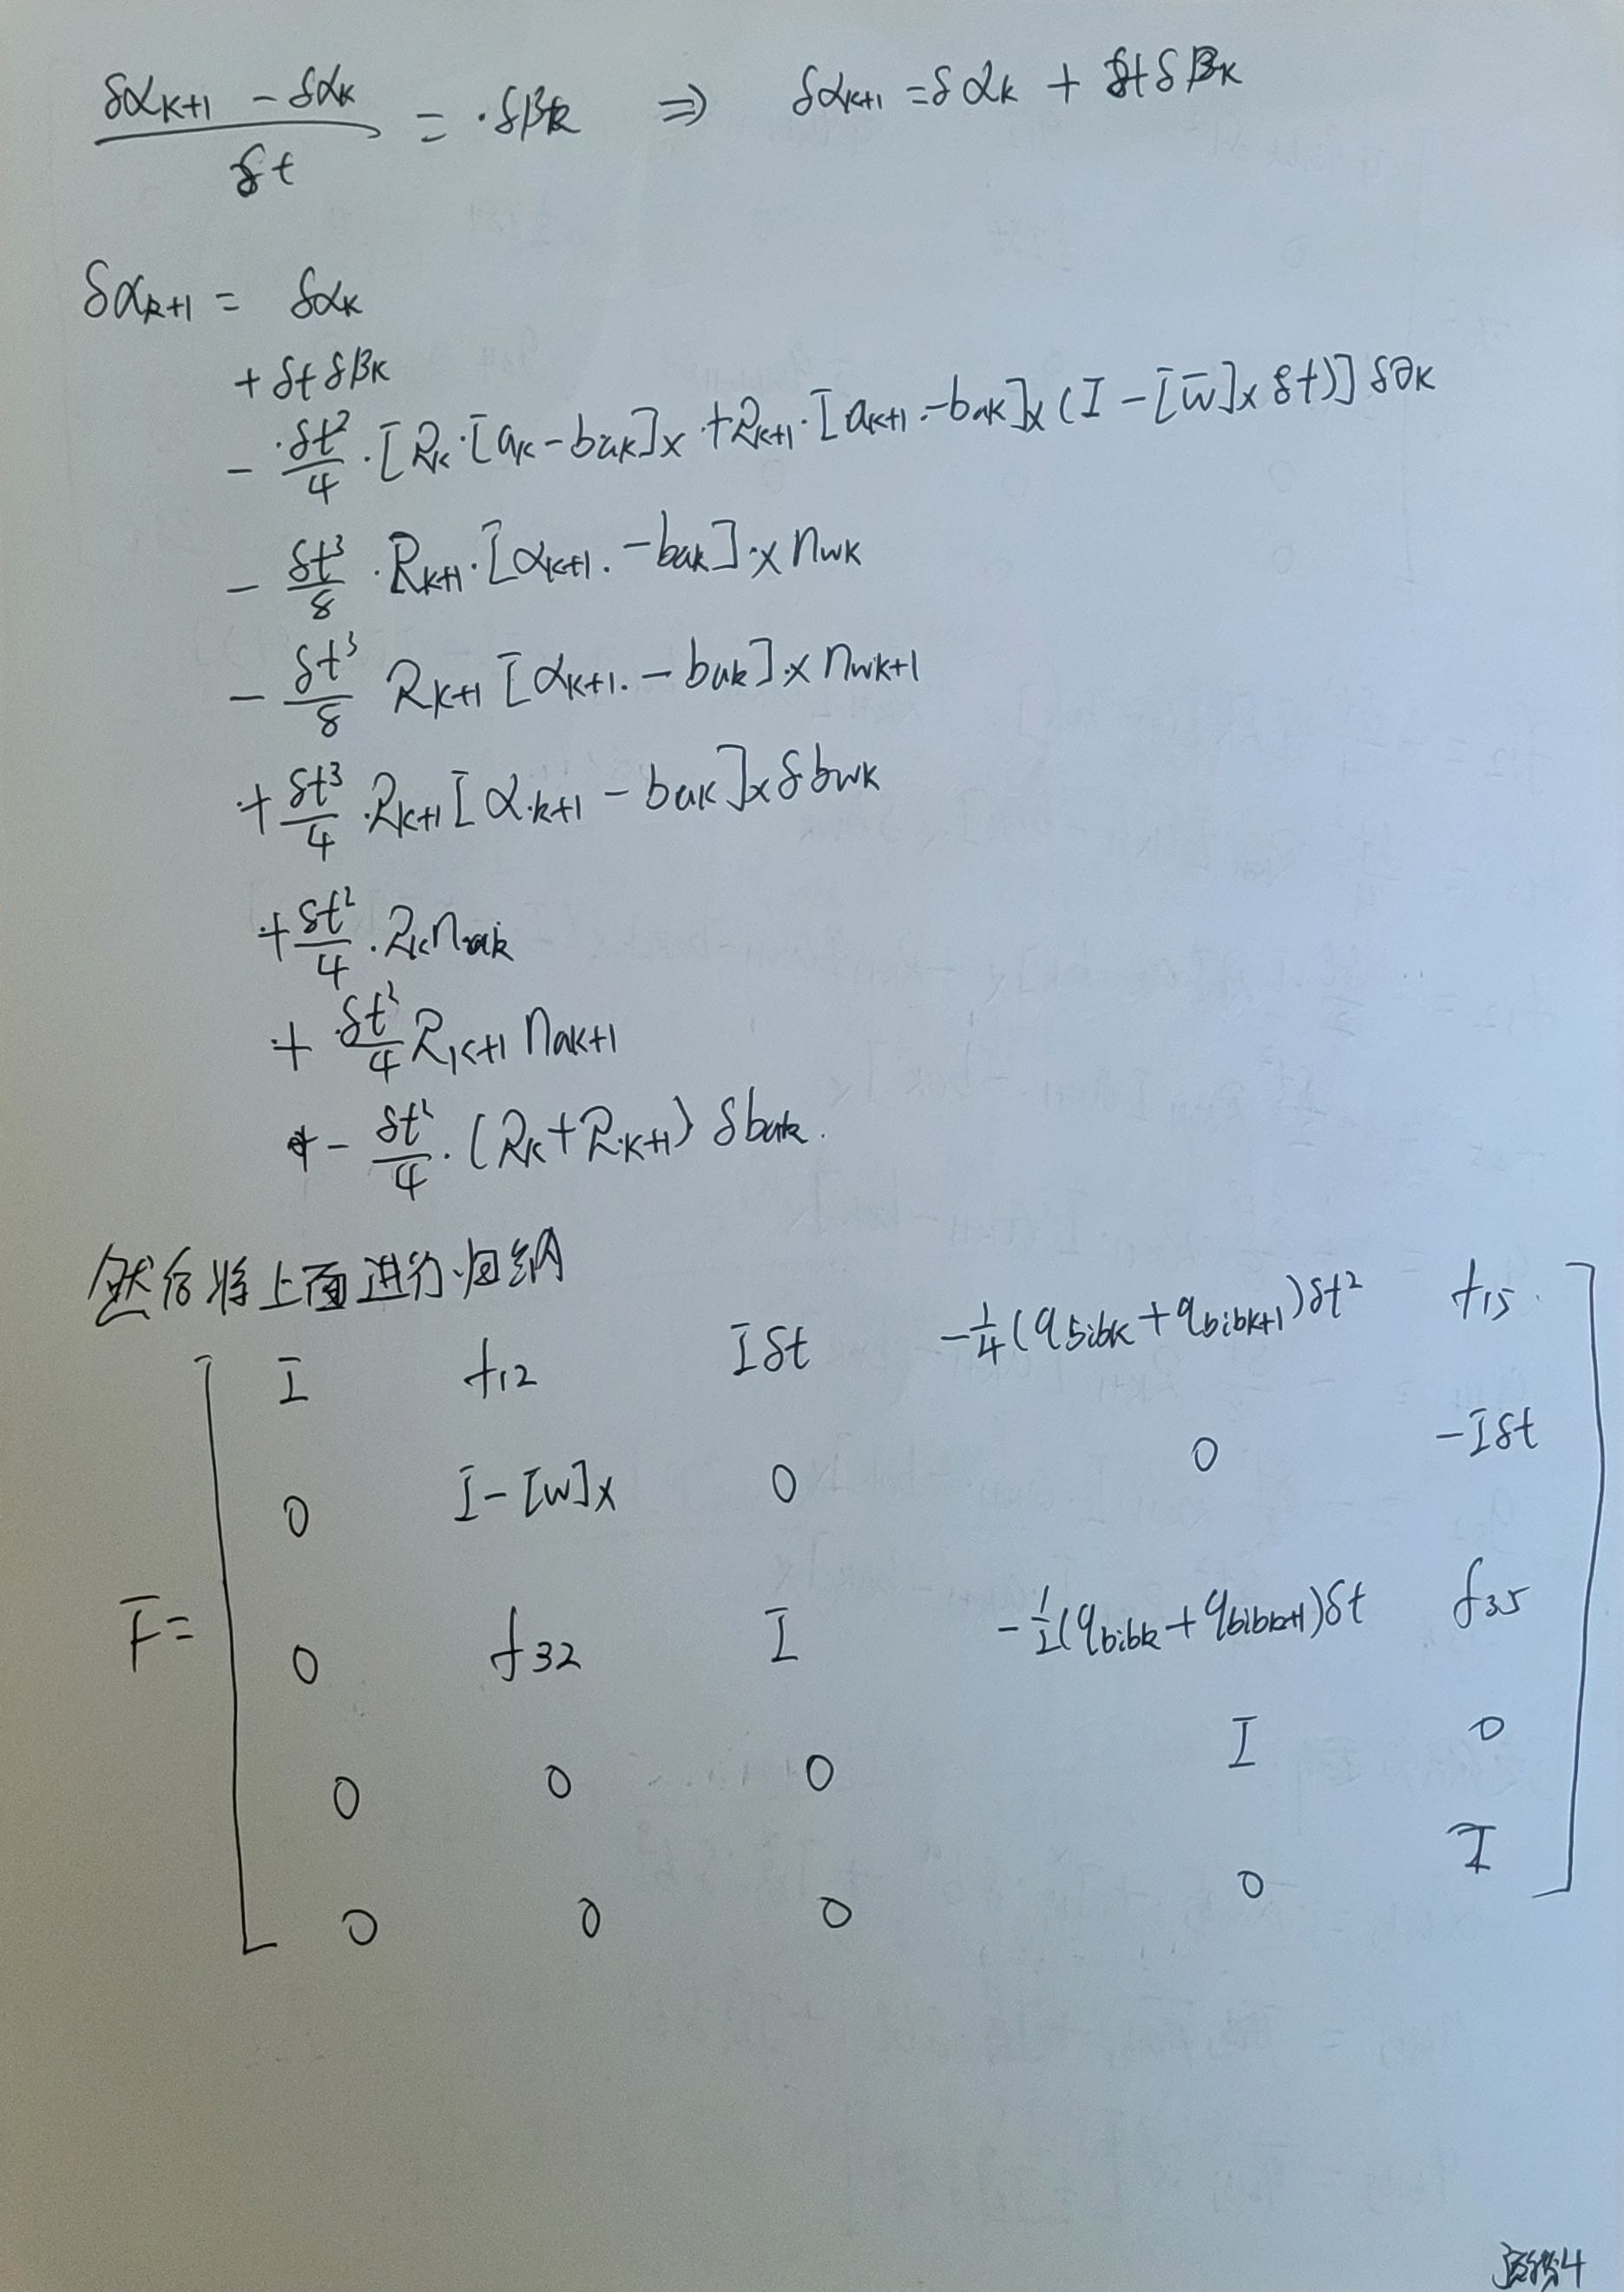 (δα_{k+1} - δα_k) / δt = ·δβ_k ⇒ δα_{k+1} = δα_k + δt δβ_k
δα_{k+1} = δα_k
+ δt δβ_k
- δt²/4 · [R_k · [a_k - b_{ak}]× + R_{k+1} · [a_{k+1} - b_{ak}]× (I - [w̄]× δt)] δθ_k
- δt³/8 · R_{k+1} · [α_{k+1} - b_{ak}]× n_{wk}
- δt³/8 R_{k+1} [α_{k+1} - b_{ak}]× n_{wk+1}
+ δt³/4 · R_{k+1} [α_{k+1} - b_{ak}]× δb_{wk}
+ δt²/4 · R_k n_{ak}
+ δt²/4 R_{k+1} n_{ak+1}
- δt²/4 · (R_k + R_{k+1}) δb_{ak}.
然后将上面进行归纳
I f_{12} Iδt -1/4(q_{bibk} + q_{bibk+1})δt² f_{15}
0 I-[w]× 0 0 -Iδt
F = 0 f_{32} I -1/2(q_{bibk} + q_{bibk+1})δt f_{35}
0 0 0 I 0
0 0 0 0 I
4